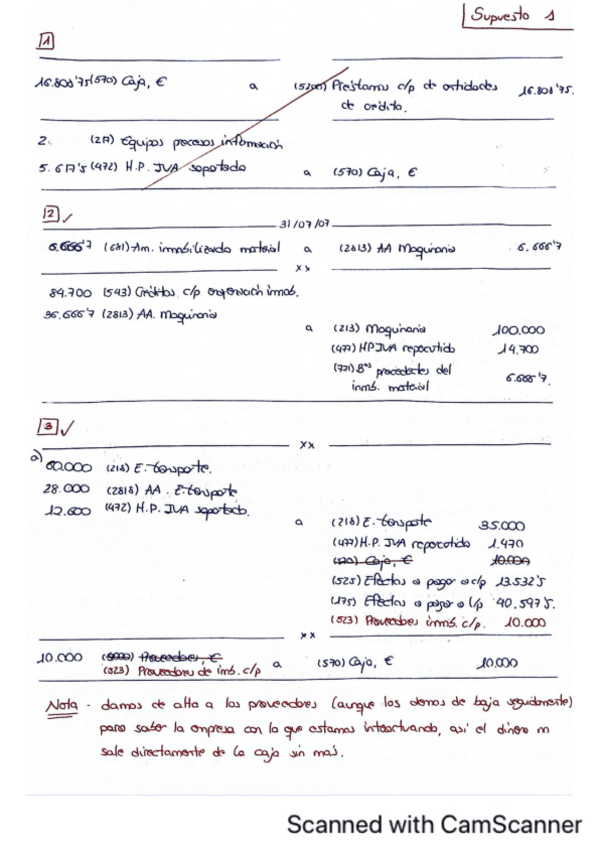 Supuesto 1
1
16.808'75 (570) Caja, € a (5200) Préstamos c/p de entidades de crédito. 16.808'75.
2. (217) Equipos procesos información
5.617'5 (472) H.P. IVA soportado a (570) Caja, €
2 ✓
31/07/07
6.666'7 (681) Am. inmobilizado material a (2813) AA Maquinaria 6.666'7
x x
84.700 (543) Créditos c/p enajenación inmob.
36.666'7 (2813) AA. Maquinaria
a (213) Maquinaria 100.000
(477) HP IVA repercutido 14.700
(771) Bºs procedentes del inmb. material 6.666'7.
3 ✓
x x
a) 60.000 (218) E. transporte.
28.000 (2818) AA. E. transporte
12.600 (472) H.P. IVA soportado.
a (218) E. transporte 35.000
(477) H.P. IVA repercutido 1.470
(570) Caja, € 10.000
(525) Efectos a pagar a c/p 13.532'5
(175) Efectos a pagar a l/p 40.597'5.
(523) Proveedores inmb. c/p. 10.000
x x
10.000 (4000) Proveedores, €
(523) Proveedores de imb. c/p a (570) Caja, € 10.000
Nota - damos de alta a los proveedores (aunque los demos de baja seguidamente)
para saber la empresa con la que estamos interactuando, así el dinero no
sale directamente de la caja sin más.
Scanned with CamScanner